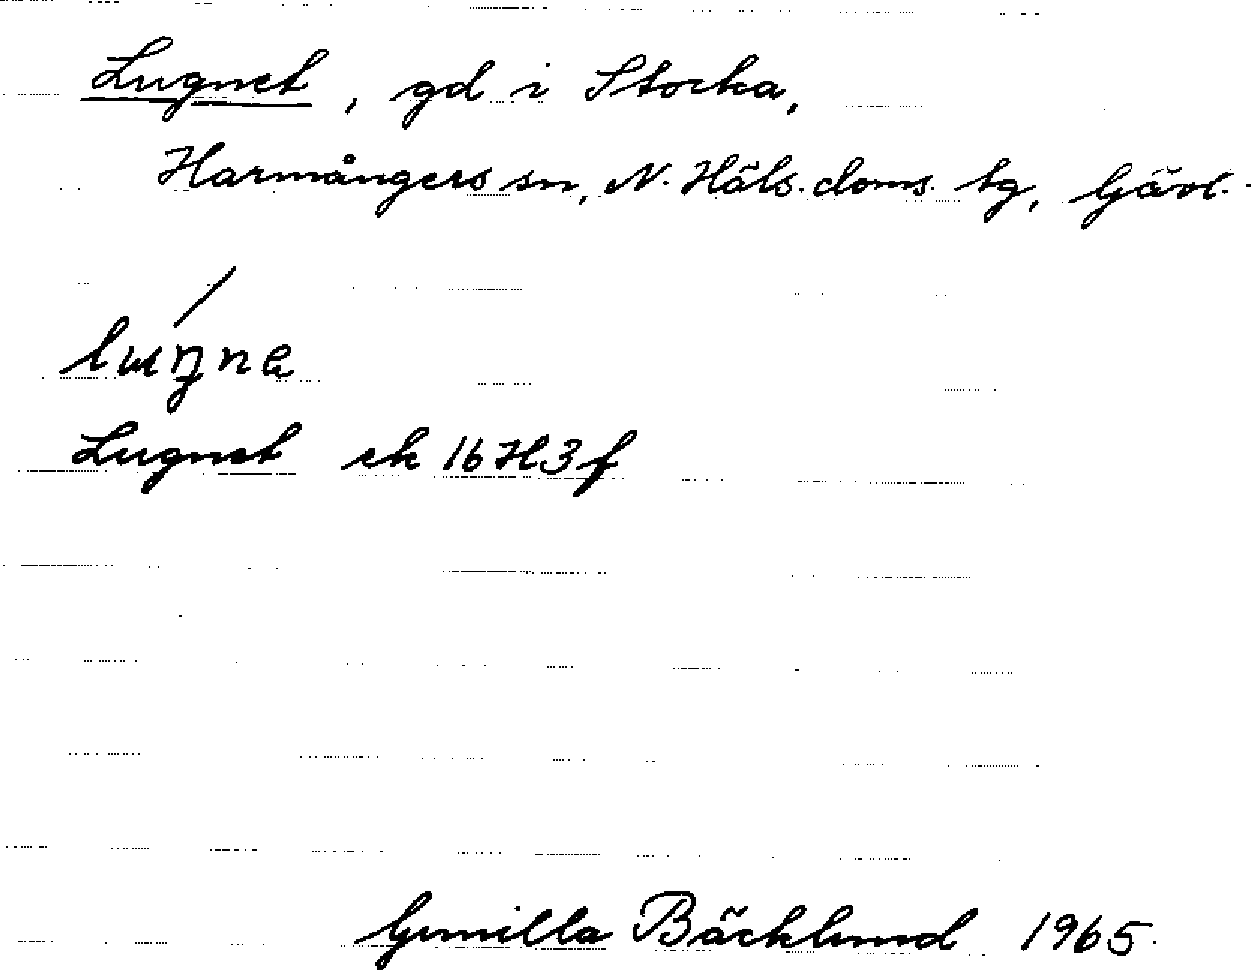 Lugnet, gd i Stocka,
Harmångers sn, N. Häls. doms. tg, Gävl.
luŋna
Lugnet ek 16H3f
Gunilla Bäcklund 1965.